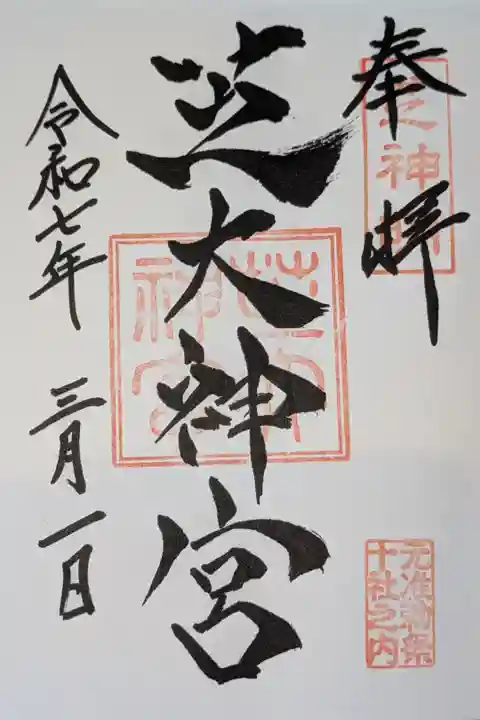 奉拝
芝神明
芝大神宮
芝大神宮
令和七年 三月一日
元准勅祭
十社之内